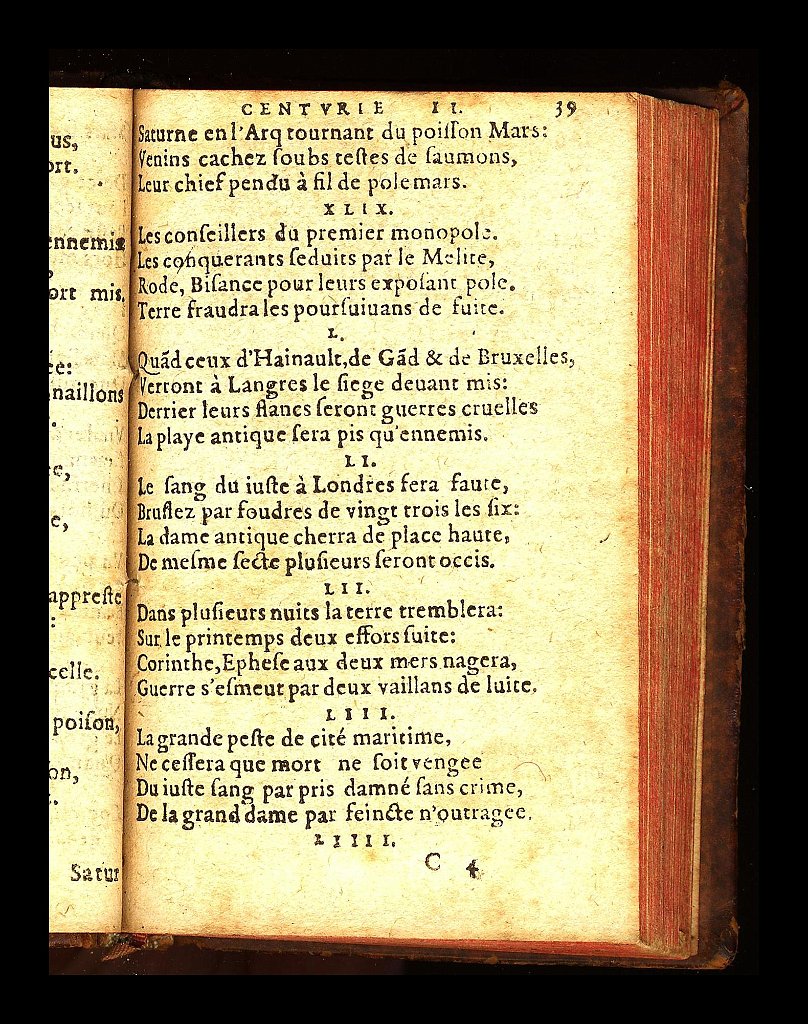 us,
ort.
ennemis
,
ort mis.
ce:
naillons
.
ce,
e,
appreste
:
celle.
poiſon,
on,
Satur
CENTVRIE II. 39
Saturne en l'Arq tournant du poiſſon Mars:
Venins cachez ſoubs teſtes de ſaumons,
Leur chief pendu à fil de polemars.
XLIX.
Les conſeillers du premier monopole.
Les conquerants ſeduits par le Melite,
Rode, Biſance pour leurs expoſant pole.
Terre fraudra les pourſuiuans de fuite.
L.
Quãd ceux d'Hainault, de Gãd & de Bruxelles,
Verront à Langres le ſiege deuant mis:
Derrier leurs flancs ſeront guerres cruelles
La playe antique ſera pis qu'ennemis.
LI.
Le ſang du iuſte à Londres fera faute,
Bruſlez par foudres de vingt trois les ſix:
La dame antique cherra de place haute,
De meſme ſecte pluſieurs ſeront occis.
LII.
Dans pluſieurs nuits la terre tremblera:
Sur le printemps deux effors ſuite:
Corinthe, Epheſe aux deux mers nagera,
Guerre s'eſmeut par deux vaillans de luite.
LIII.
La grande peſte de cité maritime,
Ne ceſſera que mort ne ſoit vengee
Du iuſte ſang par pris damné ſans crime,
De la grand dame par feincte n'outragee.
LIIII.
C 4